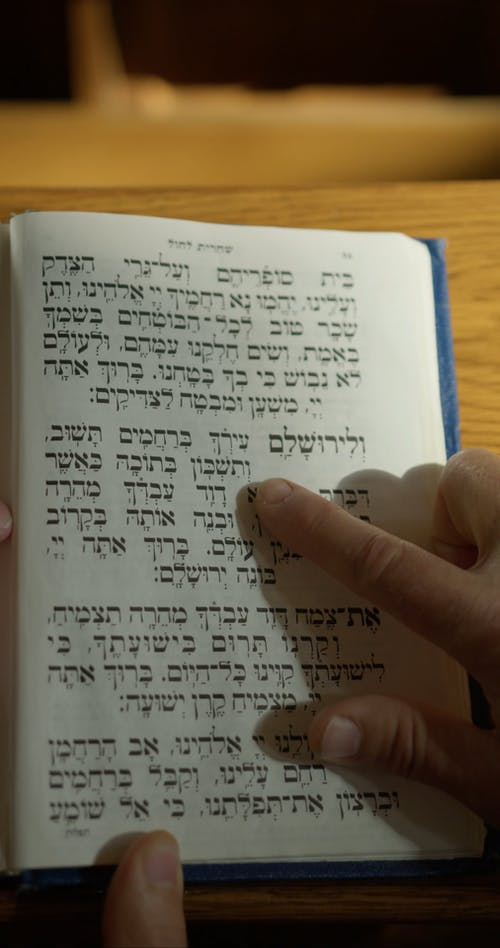 שחרית לחול
בֵּית סוֹפְרֵיהֶם וְעַל־גֵּרֵי הַצֶּדֶק
וְעָלֵינוּ, יֶהֱמוּ נָא רַחֲמֶיךָ יְיָ אֱלֹהֵינוּ, וְתֵן
שָׂכָר טוֹב לְכָל־הַבּוֹטְחִים בְּשִׁמְךָ
בֶּאֱמֶת, וְשִׂים חֶלְקֵנוּ עִמָּהֶם, וּלְעוֹלָם
לֹא נֵבוֹשׁ כִּי בְךָ בָּטָחְנוּ. בָּרוּךְ אַתָּה
יְיָ, מִשְׁעָן וּמִבְטָח לַצַּדִּיקִים:
וְלִירוּשָׁלַיִם עִירְךָ בְּרַחֲמִים תָּשׁוּב,
וְתִשְׁכּוֹן בְּתוֹכָהּ כַּאֲשֶׁר
דָּוִד עַבְדְּךָ מְהֵרָה
וּבְנֵה אוֹתָהּ בְּקָרוֹב
עוֹלָם. בָּרוּךְ אַתָּה יְיָ,
בּוֹנֵה יְרוּשָׁלָיִם:
אֶת־צֶמַח דָּוִד עַבְדְּךָ מְהֵרָה תַצְמִיחַ,
וְקַרְנוֹ תָּרוּם בִּישׁוּעָתֶךָ, כִּי
לִישׁוּעָתְךָ קִוִּינוּ כָּל־הַיּוֹם. בָּרוּךְ אַתָּה
יְיָ, מַצְמִיחַ קֶרֶן יְשׁוּעָה:
יְיָ אֱלֹהֵינוּ, אָב הָרַחֲמָן
רַחֵם עָלֵינוּ, וְקַבֵּל בְּרַחֲמִים
וּבְרָצוֹן אֶת־תְּפִלָּתֵנוּ, כִּי אֵל שׁוֹמֵעַ
תפלות